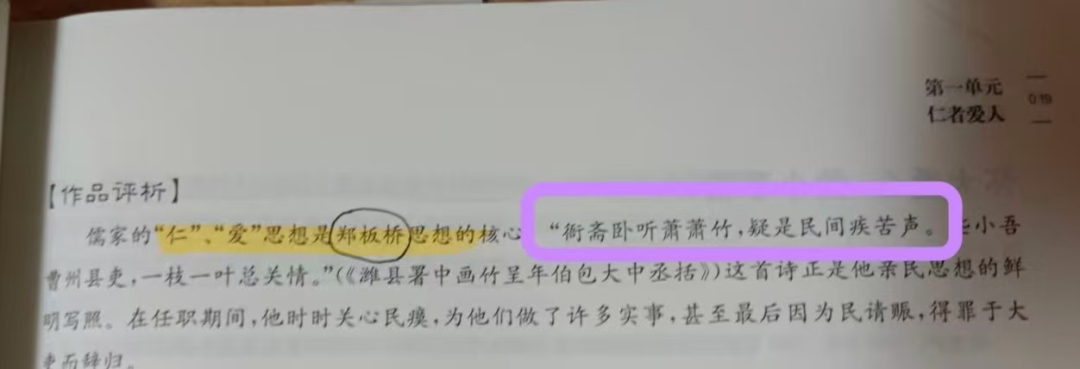 第一单元
019
仁者爱人
【作品评析】
儒家的“仁”、“爱”思想是郑板桥思想的核心 “衙斋卧听萧萧竹，疑是民间疾苦声。些小吾
曹州县吏，一枝一叶总关情。”(《潍县署中画竹呈年伯包大中丞括》)这首诗正是他亲民思想的鲜
明写照。在任职期间，他时时关心民瘼，为他们做了许多实事，甚至最后因为民请赈，得罪于大
吏而辞归。